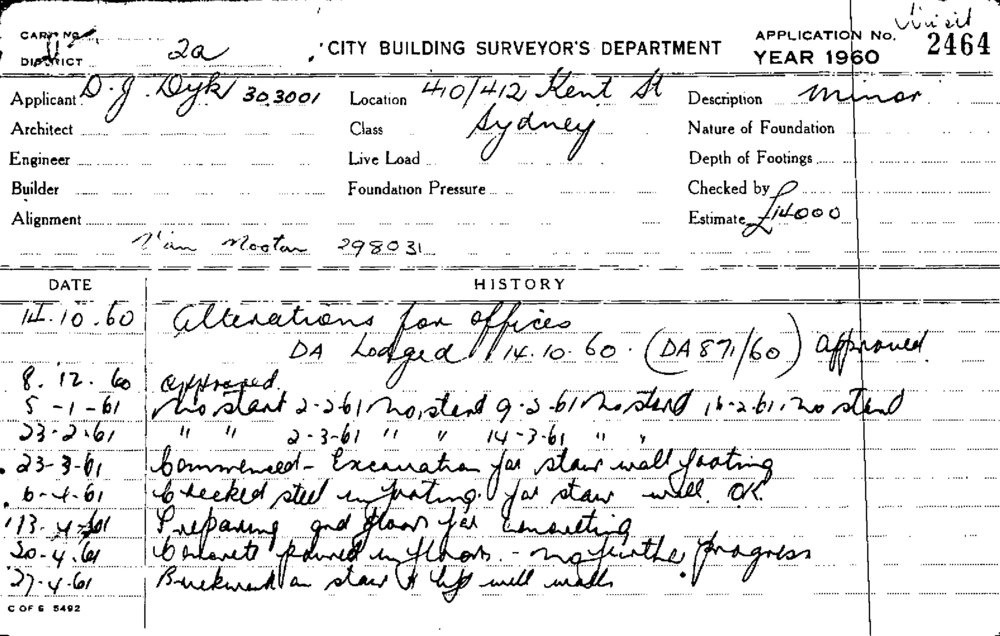 Minist
CARD No.
DISTRICT 2a
CITY BUILDING SURVEYOR'S DEPARTMENT
APPLICATION No. 2464
YEAR 1960
Applicant D. J. Dyk 303001 Location 410/412 Kent St Description minor
Architect Class Sydney Nature of Foundation
Engineer Live Load Depth of Footings
Builder Foundation Pressure Checked by
Alignment Estimate £14000
Van Mootan 298031
DATE HISTORY
14.10.60 Alterations for offices
DA Lodged 14.10.60. (DA 871/60) approved.
8.12.60 approved.
5-1-61 No start 2-2-61 No start 9-2-61 No start 16-2-61. No start
23-2-61 " " 2-3-61 " " 14-3-61 " "
23-3-61 Commenced - Excavation for stair wall footing
6-4-61 Checked steel in footing for stair well. OK.
13-4-61 Preparing gnd floor for concreting
20-4-61 Concrete poured in floors - no further progress
27-4-61 Brickwork on stair & lift well walls
C OF S 5492